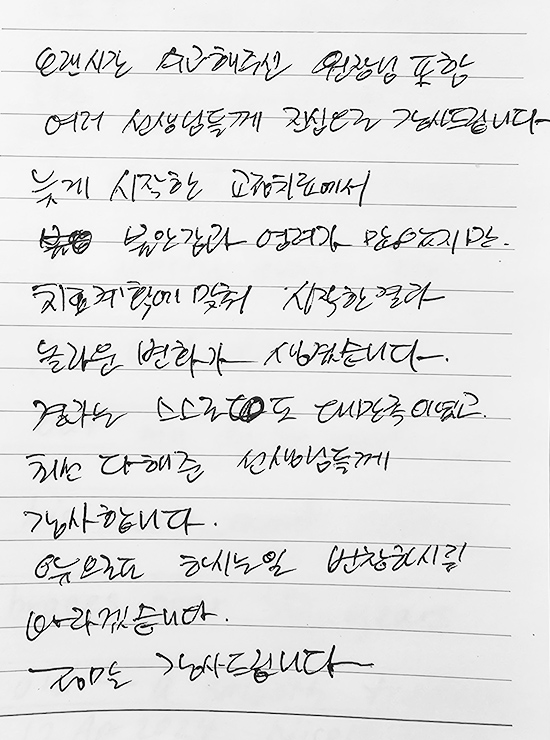 오랜시간 수고해주신 원장님 포함
여러 선생님들께 진심으로 감사드립니다
늦게 시작한 교정치료에서
불안감과 염려가 많았지만.
치료계획에 맞춰 시작한결과
놀라운 변화가 생겼습니다.
결과는 스스로도 대만족이였고.
최선 다해준 선생님들께
감사합니다.
앞으로도 하시는일 번창하시길
바라겠습니다.
정말 감사드립니다